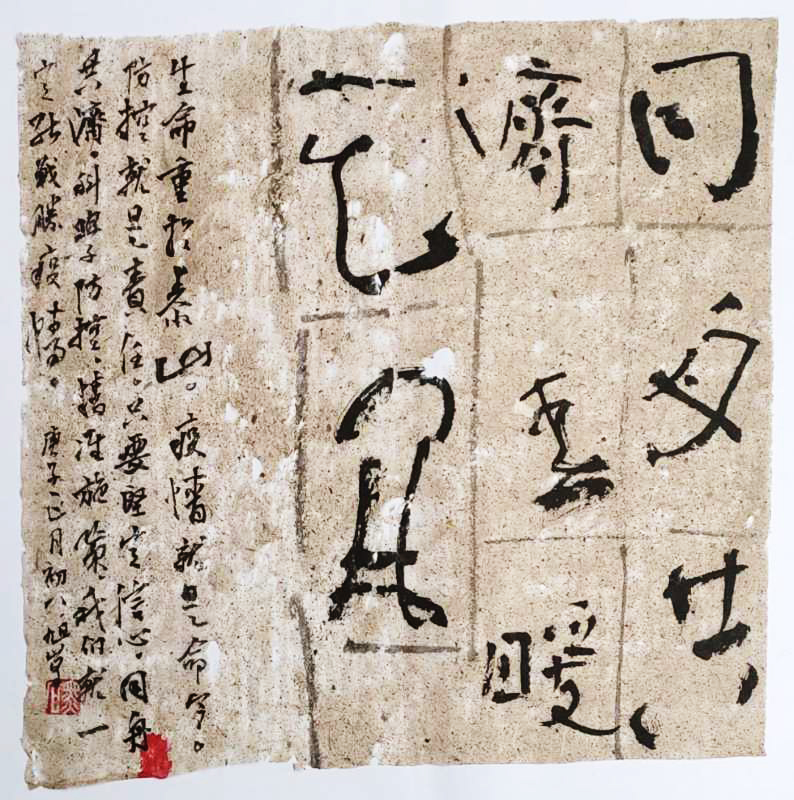 同舟共
濟春暖
花開
生命重於泰山。疫情就是命令。
防控就是責任。只要堅定信心。同舟
共濟。科學防控。精准施策。我們就一
定能戰勝疫情。庚子正月初八旭